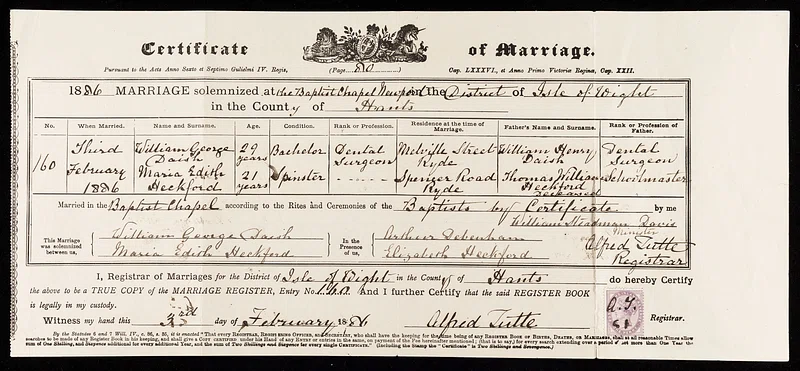 Certificate of Marriage.
Pursuant to the Acts Anno Sexto et Septimo Gulielmi IV. Regis, (Page 80) Cap. LXXXVI., et Anno Primo Victoriæ Reginæ, Cap. XXII.
1886 MARRIAGE solemnized at the Baptist Chapel Newport in the District of Isle of Wight
in the County of Hants
No. When Married. Name and Surname. Age. Condition. Rank or Profession. Residence at the time of Marriage. Father's Name and Surname. Rank or Profession of Father.
160 Third February 1886
William George Daish 29 years Bachelor Dental Surgeon Melville Street Ryde William Henry Daish Dental Surgeon
Maria Edith Heckford 21 years Spinster Spencer Road Ryde Thomas William Heckford deceased Schoolmaster
Married in the Baptist Chapel according to the Rites and Ceremonies of the Baptists by Certificate by me
William Steadman Davis
Minister
This Marriage was solemnized between us, William George Daish Maria Edith Heckford in the Presence of us, Arthur Debenham Elizabeth Heckford
Alfred Tutte
Registrar
I, Registrar of Marriages for the District of Isle of Wight in the County of Hants do hereby Certify
the above to be a TRUE COPY of the MARRIAGE REGISTER, Entry No. 160 And I further Certify that the said REGISTER BOOK
is legally in my custody.
A.T.
Witness my hand this 3rd day of February 1886 Alfred Tutte Registrar.
By the Statute 6 and 7 Will. IV., c. 86, s. 35, it is enacted "That every REGISTRAR, REGISTERING OFFICER, and SECRETARY, who shall have the keeping for the time being of any REGISTER BOOK OF BIRTHS, DEATHS, OR MARRIAGES, shall at all reasonable Times allow
searches to be made of any Register Book in his keeping, and shall give a COPY certified under his Hand of any ENTRY or ENTRIES in the same, on payment of the Fee hereinafter mentioned; (that is to say,) for every search extending over a period not more than One Year the
sum of One Shilling, and Sixpence additional for every additional Year, and the Sum of Two Shillings and Sixpence for every single CERTIFICATE." (Including the Stamp the "Certificate" is Two Shillings and Sevenpence.)